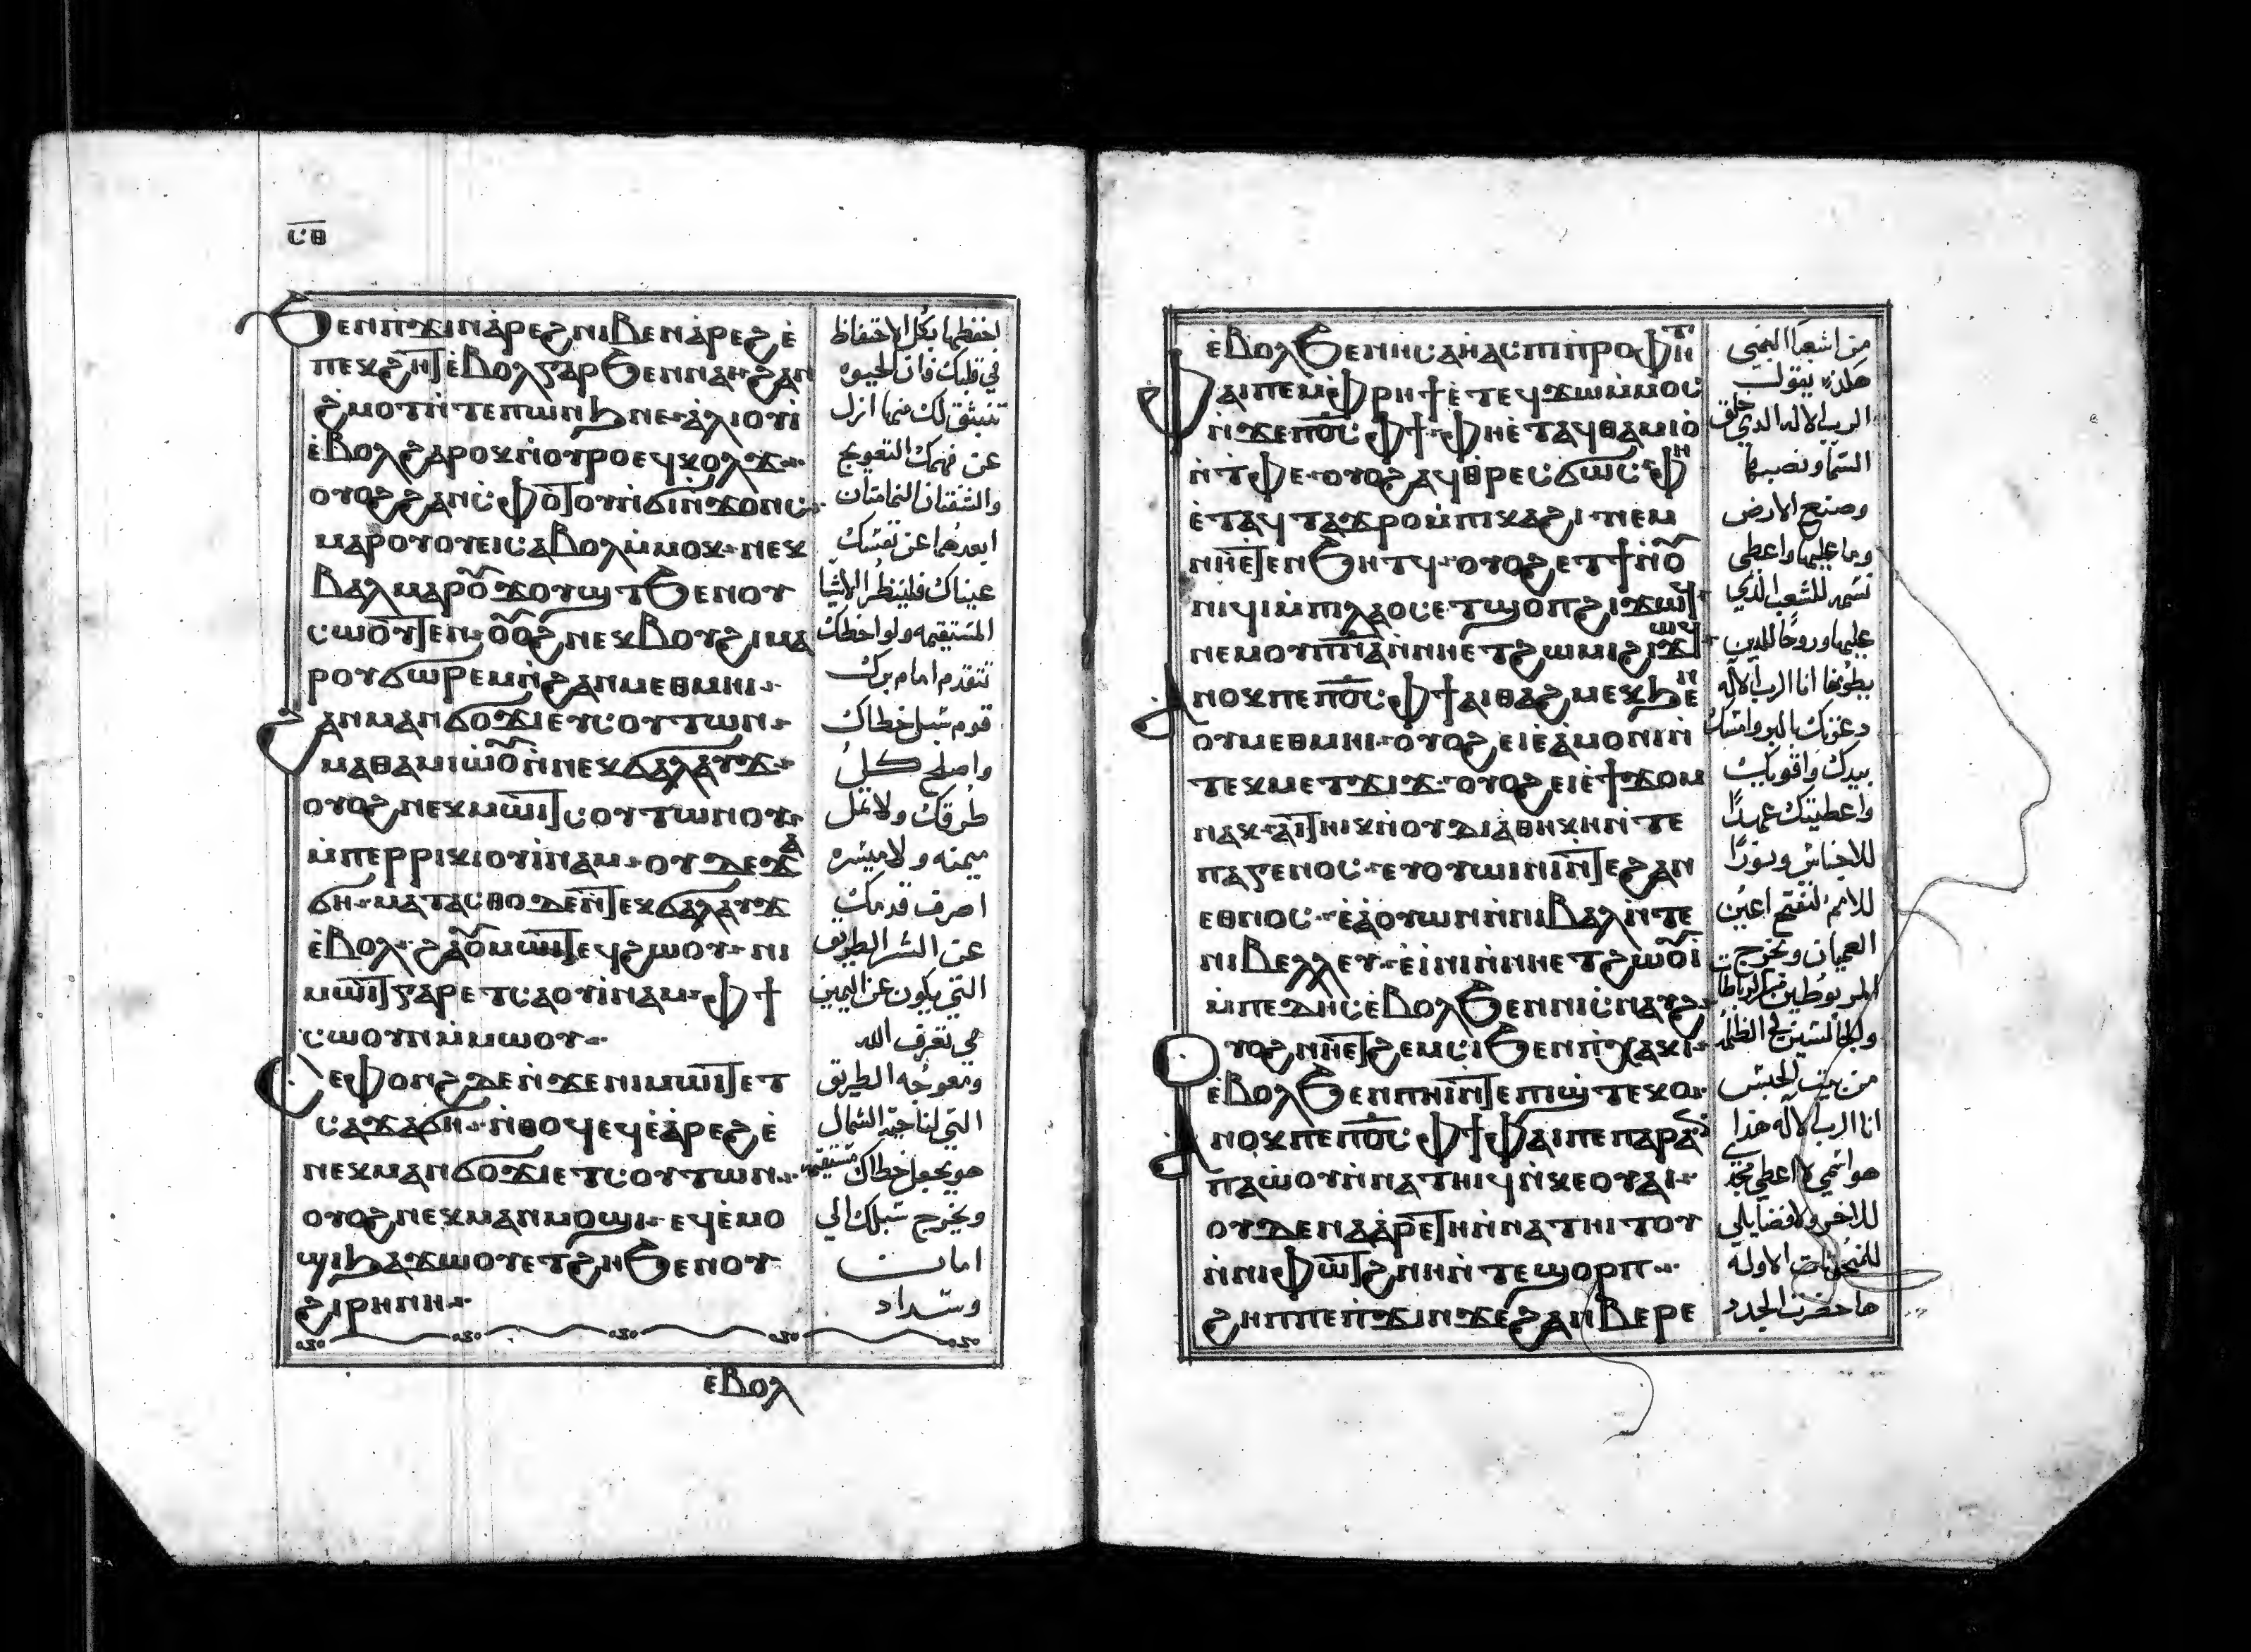 ⲥ̅ⲑ̅
ϧⲉⲛⲡϫⲓⲛⲁⲣⲉϩ ⲛⲓⲃⲉⲛ ⲁⲣⲉϩ ⲉ̀
ⲡⲉⲕϩⲏⲧ ⲉ̀ⲃⲟⲗⲅⲁⲣ ϧⲉⲛⲛⲁⲓ ϩⲁⲛ
ϩⲙⲟⲧ ⲛ̀ⲧⲉⲡⲱⲛϧ ⲛⲉ ⲁⲗⲓⲟⲩⲓ̀
ⲉ̀ⲃⲟⲗϩⲁⲣⲟⲕ ⲛ̀ⲟⲩⲣⲟ ⲉϥⲕⲟⲗϫ
ⲟⲩⲟϩ ϩⲁⲛⲥ̀ⲫⲟⲧⲟⲩ ⲛ̀ϭⲓⲛ̀ϫⲟⲛⲥ
ⲙⲁⲣⲟⲩⲟⲩⲉⲓ ⲥⲁⲃⲟⲗ ⲙ̀ⲙⲟⲕ ⲛⲉⲕ
ⲃⲁⲗ ⲙⲁⲣⲟⲩϫⲟⲩϣⲧ ϧⲉⲛⲟⲩ
ⲥⲱⲟⲩⲧⲉⲛ ⲟⲩⲟϩ ⲛⲉⲕⲃⲟⲩϩⲓ ⲙⲁ
ⲣⲟⲩϭⲱⲣⲉⲙ ⲛ̀ϩⲁⲛⲙⲉⲑⲙⲏⲓ
ϩⲁⲛⲙⲁⲛϭⲟϫⲓ ⲉⲩⲥⲟⲩⲧⲱⲛ
ⲙⲁⲑⲁⲙⲓⲱⲟⲩ ⲛ̀ⲛⲉⲕϭⲁⲗⲁⲩϫ
ⲟⲩⲟϩ ⲛⲉⲕⲙⲱⲓⲧ ⲥⲟⲩⲧⲱⲛⲟⲩ
ⲙ̀ⲡⲉⲣⲣⲓⲕⲓ ⲟⲩⲓ̀ⲛⲁⲙ ⲟⲩⲇⲉ ϫⲁ
ϭⲏ ⲙⲁⲧⲁⲥⲑⲟ ⲇⲉ ⲛ̀ⲧⲉⲕϭⲁⲗⲁⲩϫ
ⲉ̀ⲃⲟⲗ ϩⲁⲟⲩⲙⲱⲓⲧ ⲉϥϩⲱⲟⲩ ⲛⲓ
ⲙⲱⲓⲧ ⲅⲁⲣ ⲉⲧⲥⲁⲟⲩⲓ̀ⲛⲁⲙ ⲫϯ
ⲥⲱⲟⲩⲛ ⲙ̀ⲙⲱⲟⲩ
ⲥⲉⲫⲟⲛϩ ⲇⲉ ⲛ̀ϫⲉⲛⲓⲙⲱⲓⲧ ⲉⲧ
ⲥⲁϫⲁϭⲏ ⲛ̀ⲑⲟϥ ⲉϥⲉ̀ⲁ̀ⲣⲉϩ ⲉ̀
ⲛⲉⲕⲙⲁⲛϭⲟϫⲓ ⲉⲧⲥⲟⲩⲧⲱⲛ
ⲟⲩⲟϩ ⲛⲉⲕⲙⲁⲛⲙⲟϣⲓ ⲉϥⲉ̀ⲙⲟ
ϣⲓ ϧⲁϫⲱⲟⲩ ⲉⲧϩⲏ ϧⲉⲛⲟⲩ
ϩⲓⲣⲏⲛⲏ
ⲉ̀ⲃⲟⲗ
احفظها بكل الاحتفاظ
في قلبك فان الحيوه
تنبثق لك منها ازل
عن فمك التعويج
والشفتان الظالمتان
ابعدهما عن نفسك
عيناك فلينظر الاشيا
المستقيمه ولواحظك
تتقدم امام برك
قوم سبل خطاك
واصلح كل
طرقك ولا تمل
ميمنه ولا ميسره
اصرف قدمك
عن الشر الطريق
التي يكون عن اليمين
هي تعرف الله
ومعوجه الطريق
التي لناحية الشمال
هو يجعل خطاك مستقيمه
ويخرج سبلك الي
امان
وسداد
ⲉ̀ⲃⲟⲗ ϧⲉⲛ ⲏⲥⲁⲏⲁⲥ ⲡⲓⲡⲣⲟⲫⲏⲧ
ⲫⲁⲓ ⲡⲉ ⲙ̀ⲫⲣⲏϯ ⲉⲧⲉϥϫⲱ ⲙ̀ⲙⲟⲥ
ⲛ̀ϫⲉ ⲡⲟ̅ⲥ̅ ⲫϯ ⲫⲏⲉ̀ⲧⲁϥⲑⲁⲙⲓⲟ̀
ⲛ̀ⲧⲫⲉ ⲟⲩⲟϩ ⲁϥⲑⲣⲉⲥϭⲱⲥ ⲫⲏ
ⲉ̀ⲧⲁϥⲧⲁϫⲣⲟ ⲙ̀ⲡⲓⲕⲁϩⲓ ⲛⲉⲙ
ⲛⲏⲉⲧⲉⲛϧⲏⲧϥ ⲟⲩⲟϩ ⲉⲧϯ ⲛ̀ⲟⲩ
ⲛⲓϥⲓ ⲙ̀ⲡⲓⲗⲁⲟⲥ ⲉⲧϣⲟⲡ ϩⲓϫⲱϥ
ⲛⲉⲙ ⲟⲩⲡ̅ⲛ̅ⲁ̅ ⲛ̀ⲛⲏⲉⲧϩⲱⲙⲓ ϩⲓϫⲱϥ
ⲁⲛⲟⲕ ⲡⲉ ⲡⲟ̅ⲥ̅ ⲫϯ ⲁⲓⲑⲁϩⲙⲉⲕ ϧⲉⲛ
ⲟⲩⲙⲉⲑⲙⲏⲓ ⲟⲩⲟϩ ⲉⲓⲉ̀ⲁ̀ⲙⲟⲛⲓ ⲛ̀
ⲧⲉⲕⲙⲉⲧϫⲓϫ ⲟⲩⲟϩ ⲉⲓⲉ̀ϯϫⲟⲙ
ⲛⲁⲕ ⲁⲓⲧⲏⲓⲕ ⲛ̀ⲟⲩⲇⲓⲁⲑⲏⲕⲏ ⲛ̀ⲧⲉ
ⲡⲁⲅⲉⲛⲟⲥ ⲉⲩⲟⲩⲱⲓⲛⲓ ⲛ̀ⲧⲉϩⲁⲛ
ⲉⲑⲛⲟⲥ ⲉ̀ⲁ̀ⲟⲩⲱⲛ ⲛ̀ⲛⲓⲃⲁⲗ ⲛ̀ⲧⲉ
ⲛⲓⲃⲉⲗⲗⲉⲩ ⲉ̀ⲓ̀ⲛⲓ ⲛ̀ⲛⲏⲉⲧϩⲱⲟⲩⲓ
ⲙ̀ⲡⲉⲇⲏⲥ ⲉ̀ⲃⲟⲗ ϧⲉⲛⲛⲓⲥ̀ⲛⲁⲩϩ
ⲟⲩⲟϩ ⲛⲏⲉⲧϩⲉⲙⲥⲓ ϧⲉⲛⲡⲭⲁⲕⲓ
ⲉ̀ⲃⲟⲗ ϧⲉⲛⲡⲏⲓ ⲛ̀ⲧⲉⲡⲓϣ̀ⲧⲉⲕⲟ
ⲁⲛⲟⲕ ⲡⲉ ⲡⲟ̅ⲥ̅ ⲫϯ ⲫⲁⲓ ⲡⲉ ⲡⲁⲣⲁⲛ
ⲡⲁⲱ̀ⲟⲩ ⲛ̀ⲛⲁⲧⲏⲓϥ ⲛ̀ⲕⲉⲟⲩⲁⲓ
ⲟⲩⲇⲉ ⲛⲁⲁ̀ⲣⲉⲧⲏ ⲛ̀ⲛⲁⲧⲏⲓⲧⲟⲩ
ⲛ̀ⲛⲓⲫⲱⲧϩ ⲛⲏ ⲛ̀ⲧⲉϣⲟⲣⲡ
ϩⲏⲡⲡⲉ ⲛ̀ϫⲓⲛϫⲉ ϩⲁⲛⲃⲉⲣⲉ
من اشعيا النبي
هكذا يقول
الرب الاله الذي خلق
السما ونصبها
وصنع الارض
وما عليها واعطي
نسمه للشعب الذي
عليها وروحا للذين
يطونها انا الرب الاله
دعوتك بالبر وامسك
بيدك واقويك
واعطيتك عهدا
للاجناس ونورا
للامم لتفتح اعين
العميان وتخرج
المربوطين من الرباطات
والجالسين في الظلمه
من بيت الحبس
انا الرب الاله هذا
هو اسمي لا اعطي مجدي
للاخر ولا فضايلي
للمنحوتات الاوله
ها حضرت الجدد